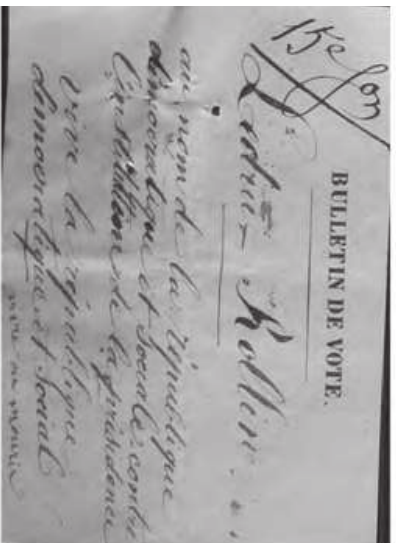 15e Son
BULLETIN DE VOTE.
Ledru-Rollin.
au nom de la république
démocratique et Sociale contre
l'institution de la présidence
vive la république
démocratique et Social